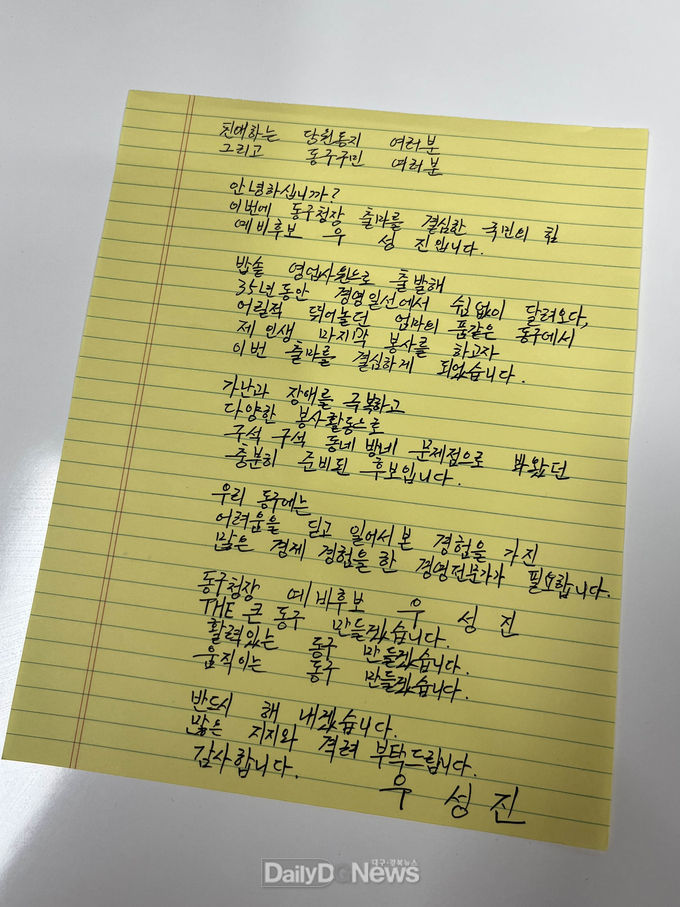 친애하는 당원동지 여러분
그리고 동구구민 여러분
안녕하십니까?
이번에 동구청장 출마를 결심한 국민의 힘
예비후보 우 성 진입니다.
밥솥 영업사원으로 출발해
35년동안 경영일선에서 쉼없이 달려오다,
어릴적 뛰어놀던 엄마의 품같은 동구에서
제 인생 마지막 봉사를 하고자
이번 출마를 결심하게 되었습니다.
가난과 장애를 극복하고
다양한 봉사활동으로
구석 구석 동네 방네 문제점으로 봐왔던
충분히 준비된 후보입니다.
우리 동구에는
어려움을 딛고 일어서본 경험을 가진
많은 경제 경험을 한 경영전문가가 필요합니다.
동구청장 예비후보 우 성 진
THE 큰 동구 만들겠습니다.
활력있는 동구 만들겠습니다.
움직이는 동구 만들겠습니다.
반드시 해 내겠습니다.
많은 지지와 격려 부탁드립니다.
감사합니다.
우 성 진
대구·경북뉴스
DailyDGNews